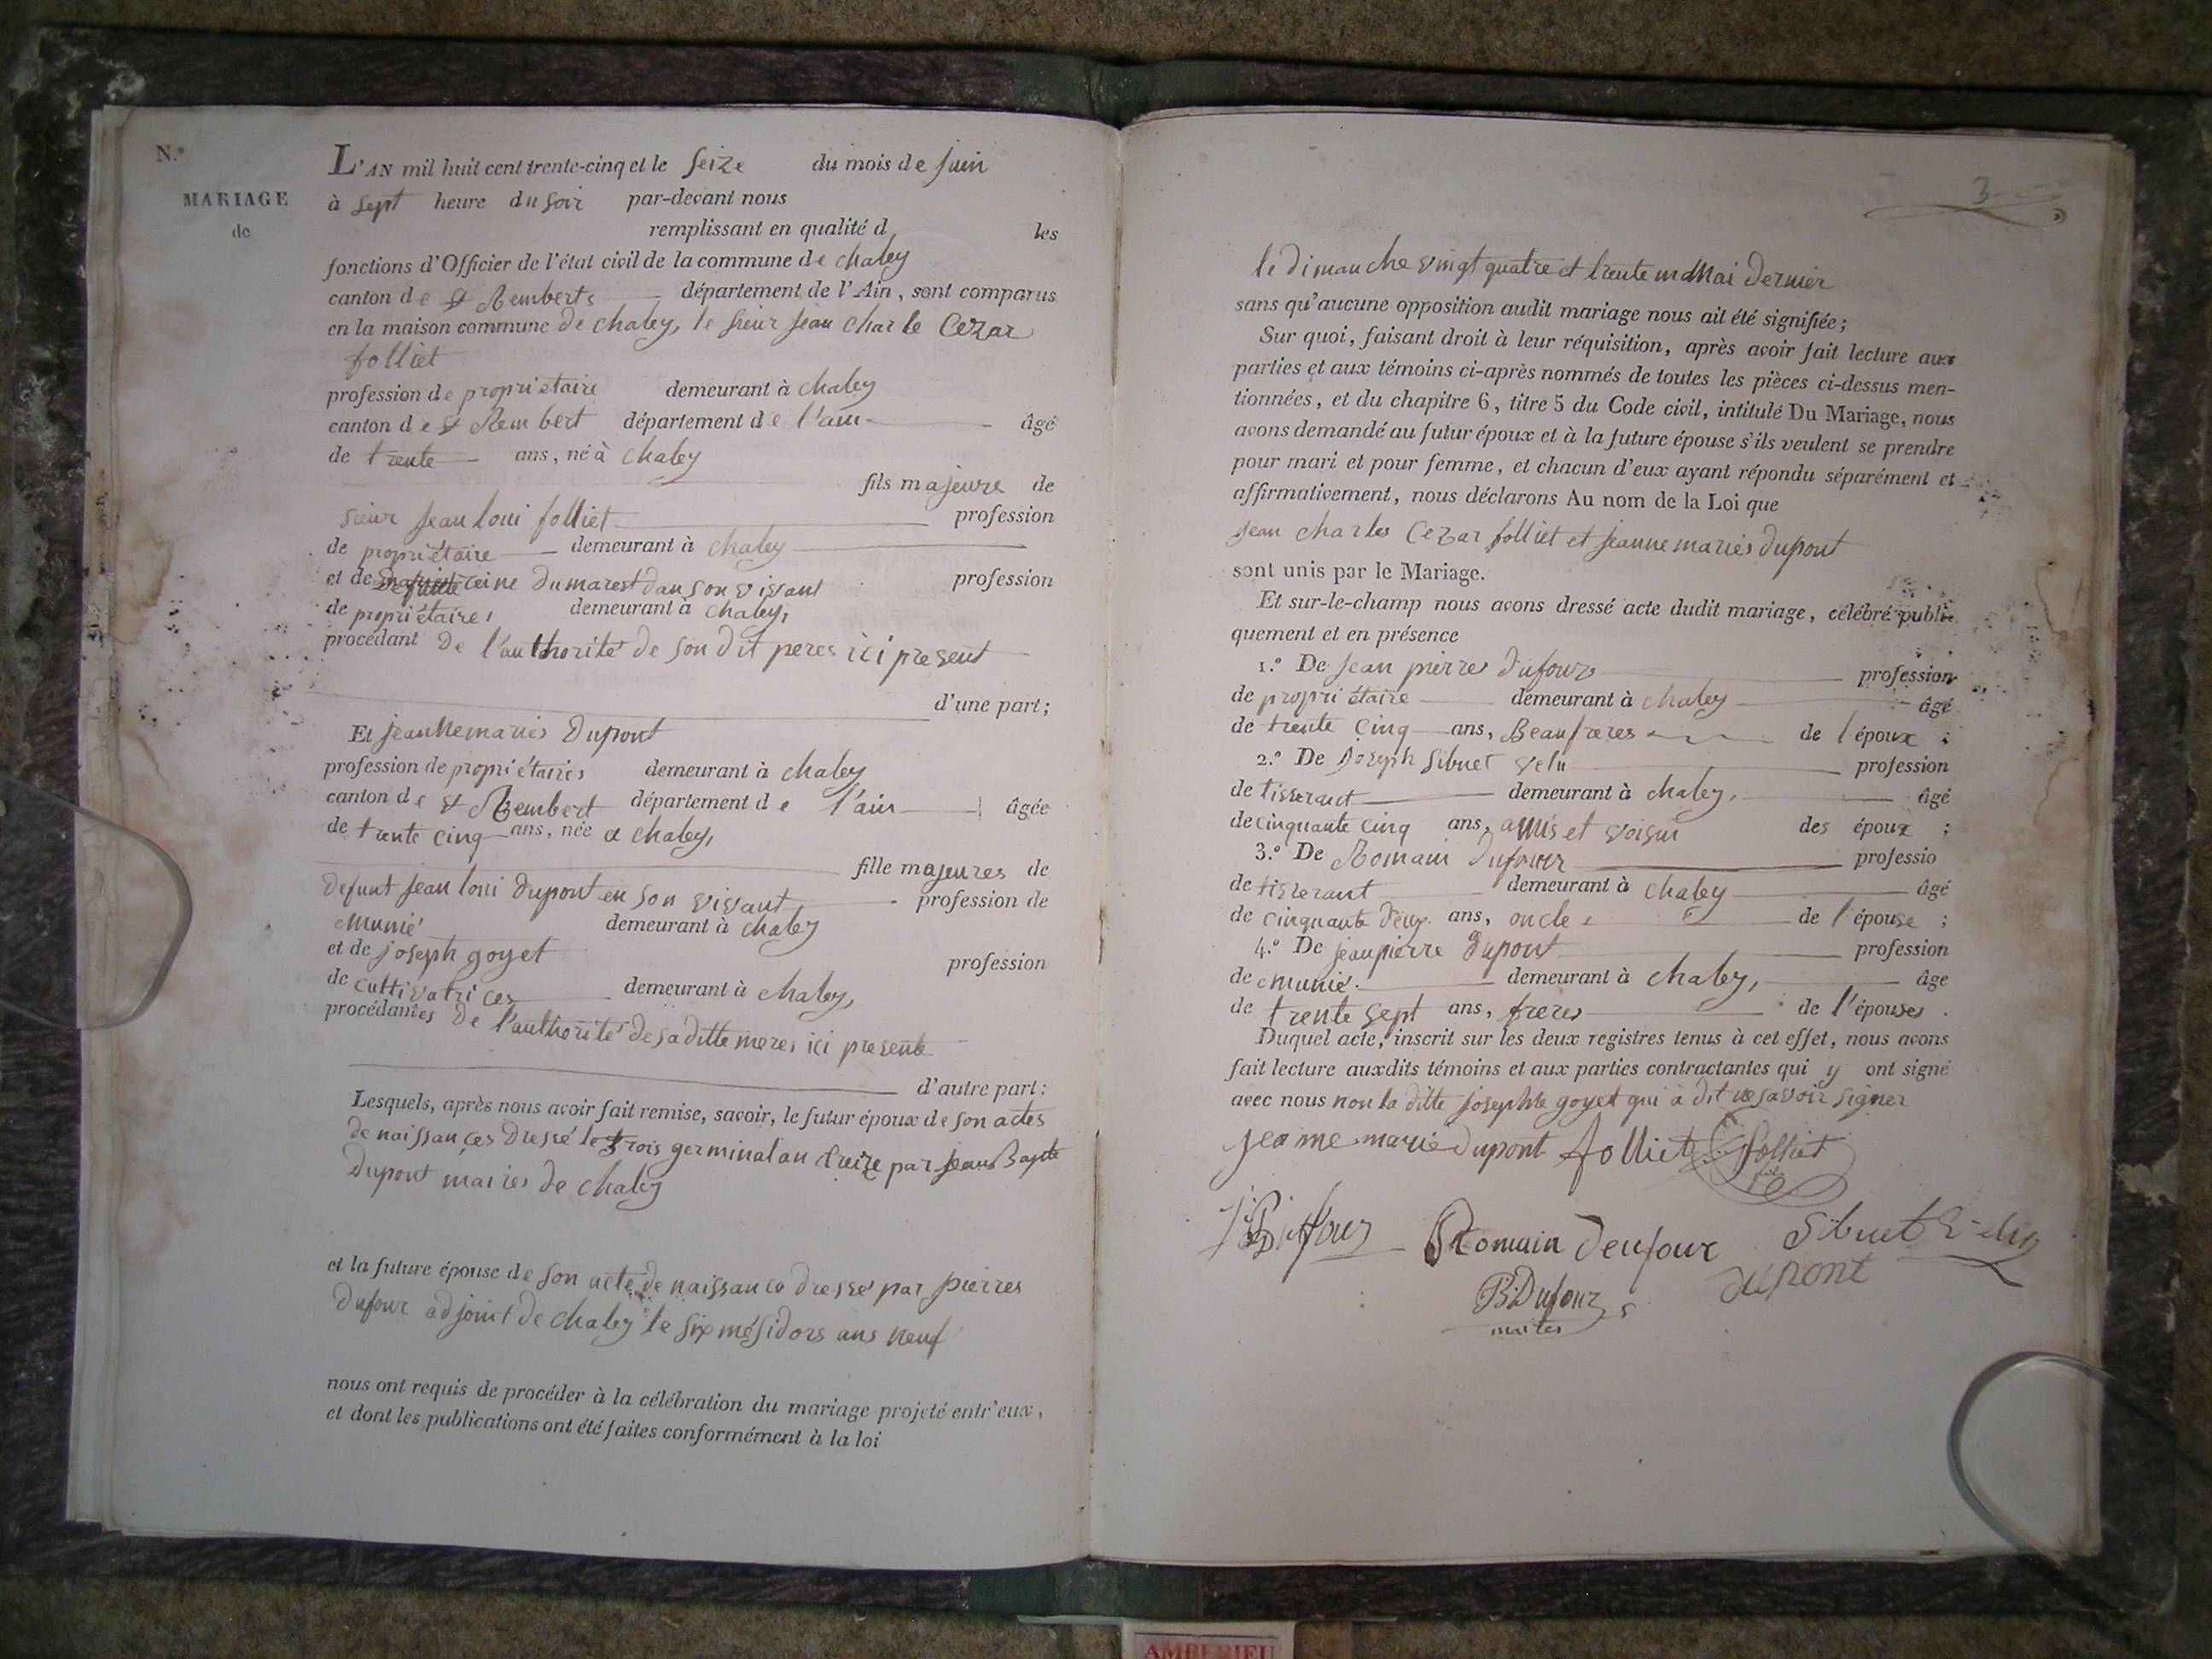 N.º
MARIAGE
de
L'AN mil huit cent trente-cinq et le seize du mois de juin
à sept heure du soir par-devant nous
remplissant en qualité d les
fonctions d'Officier de l'état civil de la commune de chaley
canton de st Remberts département de l'Ain, sont comparus
en la maison commune de chaley, le sieur jean charle Cezar
folliet
profession de proprietaire demeurant à chaley
canton de st Rembert département de l'ain âgé
de trente ans, né à chaley
fils majeure de
sieur jean loui folliet profession
de propriétaire demeurant à chaley
et de reine dumarest dan son vivant profession
de propriétaires demeurant à chaley,
procédant de l'authorité de son dit peres ici present
d'une part;
Et jeanne maries Dupont
profession de propriétaires demeurant à chaley
canton de st Rembert département de l'ain âgée
de trente cinq ans, née a chaley,
fille majeures de
defunt jean loui dupont en son vivant profession de
munié demeurant à chaley
et de joseph goyet profession
de cultivatrices demeurant à chaley,
procédantes de l'authorité de sa ditte meres ici presente
d'autre part:
Lesquels, après nous avoir fait remise, savoir, le futur époux de son actes
de naissances dressé le trois germinal an treize par jean Bapte
Dupont maires de chaley
et la future épouse de son acte de naissance dressé par pierres
dufour adjoint de chaley le six mésidors ans neuf
nous ont requis de procéder à la célébration du mariage projeté entr'eux,
et dont les publications ont été faites conformément à la loi
3
le dimanche vingt quatre et trente un Mai dernier
sans qu'aucune opposition audit mariage nous ait été signifiée;
Sur quoi, faisant droit à leur réquisition, après avoir fait lecture aux
parties et aux témoins ci-après nommés de toutes les pièces ci-dessus men-
tionnées, et du chapitre 6, titre 5 du Code civil, intitulé Du Mariage, nous
avons demandé au futur époux et à la future épouse s'ils veulent se prendre
pour mari et pour femme, et chacun d'eux ayant répondu séparément et
affirmativement, nous déclarons Au nom de la Loi que
jean charles Cezar folliet et jeanne maries dupont
sont unis par le Mariage.
Et sur-le-champ nous avons dressé acte dudit mariage, célébré publi-
quement et en présence
1.º De jean pierres dufours profession
de propriétaire demeurant à chaley âgé
de trente cinq ans, Beaufreres de l'époux;
2.º De Joseph sibuet velu profession
de tisserant demeurant à chaley, âgé
de cinquante cinq ans, amis et voisin des époux;
3.º De Romain dufour professio
de tisserant demeurant à chaley âgé
de cinquante deux ans, oncle de l'épouse;
4.º De jean pierre dupont profession
de munié demeurant à chaley, âge
de trente sept ans, freres de l'épouses.
Duquel acte, inscrit sur les deux registres tenus à cet effet, nous avons
fait lecture auxdits témoins et aux parties contractantes qui y ont signé
avec nous non la ditte josephte goyet qui a dit ne savoir signer
jeanne marie dupont folliet folliet
Romain deufour Sibuet
dupont
Dufour
maires
AMBERIEU